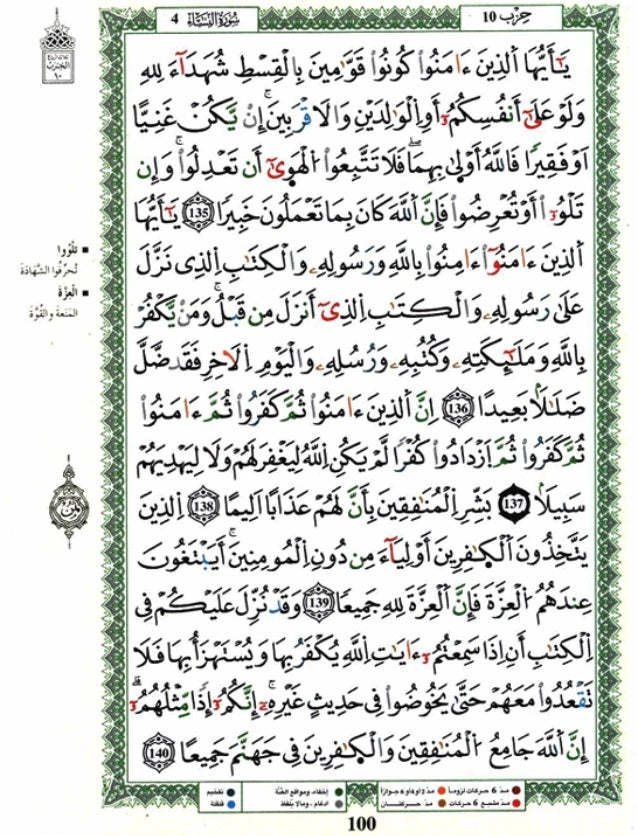 حِزْب 10
سُورَةُ النِّسَاءِ 4
ثلاثة أرباع
الحزب
١٠
يَٰٓأَيُّهَا اَ۬لذِينَ ءَامَنُواْ كُونُواْ قَوَّٰمِينَ بِالْقِسْطِ شُهَدَآءَ لِلهِ
وَلَوْ عَلَىٰٓ أَنفُسِكُمُۥٓ أَوِ اِ۬لْوَٰلِدَيْنِ وَالَاقْرَبِينَۖ إِنْ يَّكُنْ غَنِيّاً
اَوْ فَقِيراً فَاللَّهُ أَوْلَىٰ بِهِمَاۖ فَلَا تَتَّبِعُواْ اُ۬لْهَوَىٰٓ أَن تَعْدِلُواْۖ وَإِن
تَلْوُۥٓاْ أَوْ تُعْرِضُواْ فَإِنَّ اَ۬للَّهَ كَانَ بِمَا تَعْمَلُونَ خَبِيراً 135 يَٰٓأَيُّهَا
اَ۬لذِينَ ءَامَنُوٓاْ ءَامِنُواْ بِاللَّهِ وَرَسُولِهِۦ وَالْكِتَٰبِ اِ۬لذِى نَزَّلَ
عَلَىٰ رَسُولِهِۦ وَالْكِتَٰبِ اِ۬لذِىٓ أَنزَلَ مِن قَبْلُۖ وَمَنْ يَّكْفُرْ
بِاللَّهِ وَمَلَٰٓئِكَتِهِۦ وَكُتُبِهِۦ وَرُسُلِهِۦ وَالْيَوْمِ اِ۬لَاخِرِ فَقَد ضَّلَّ
ضَلَٰلاً بَعِيداً 136 اِنَّ اَ۬لذِينَ ءَامَنُواْ ثُمَّ كَفَرُواْ ثُمَّ ءَامَنُواْ
ثُمَّ كَفَرُواْ ثُمَّ اَ۪زْدَادُواْ كُفْراً لَّمْ يَكُنِ اِ۬للَّهُ لِيَغْفِرَ لَهُمْ وَلَا لِيَهْدِيَهُمْ
سَبِيلاً 137 بَشِّرِ اِ۬لْمُنَٰفِقِينَ بِأَنَّ لَهُمْ عَذَاباً اَلِيماً 138 اِ۬لذِينَ
يَتَّخِذُونَ اَ۬لْكَٰفِرِينَ أَوْلِيَآءَ مِن دُونِ اِ۬لْمُومِنِينَۖ أَيَبْتَغُونَ
عِندَهُمُ اُ۬لْعِزَّةَ فَإِنَّ اَ۬لْعِزَّةَ لِلهِ جَمِيعاً 139 وَقَدْ نُزِّلَ عَلَيْكُمْ فِى
اِ۬لْكِتَٰبِ أَنِ اِذَا سَمِعْتُمُۥٓ ءَايَٰتِ اِ۬للَّهِ يُكْفَرُ بِهَا وَيُسْتَهْزَأُ بِهَا فَلَا
تَقْعُدُواْ مَعَهُمْ حَتَّىٰ يَخُوضُواْ فِى حَدِيثٍ غَيْرِهِۦٓۖ إِنَّكُمُۥٓ إِذاً مِّثْلُهُمُۥٓۖ
إِنَّ اَ۬للَّهَ جَامِعُ اُ۬لْمُنَٰفِقِينَ وَالْكَٰفِرِينَ فِى جَهَنَّمَ جَمِيعاً 140
■ تَلْوُوا
تُحرِّفوا الشَّهادَة
■ الْعِزَّةَ
المَنَعة والقُوَّة
ثُمُن
● مدّ 6 حركات لزوماً ● مدّ 2 أو 4 أو 6 جوازاً
● مدّ مشبع 6 حركات ● مدّ حركتان
● إخفاء، ومواقع الغُنَّة
● ادغام، ومالا يُلفظ
● تفخيم
● قلقلة
100